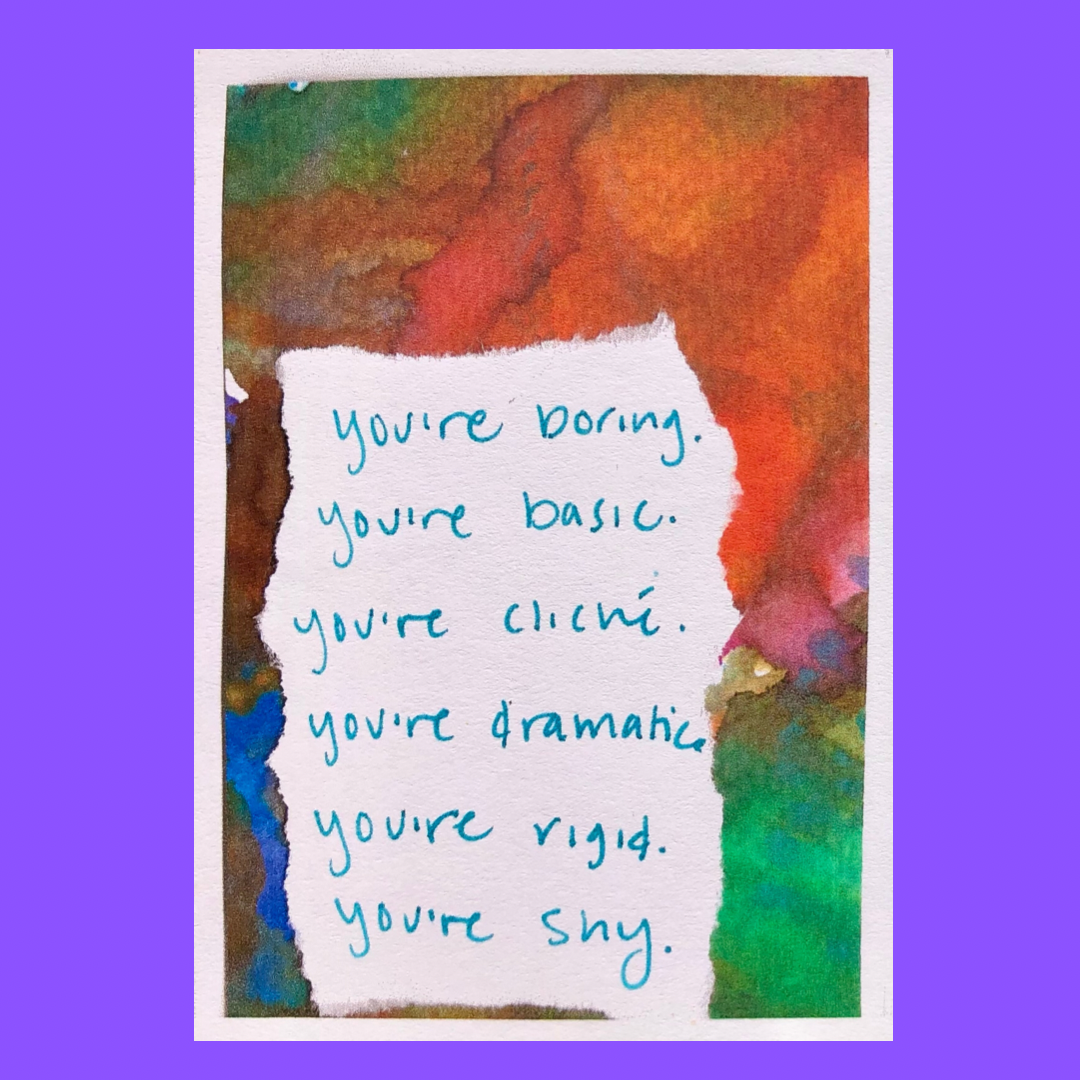 you're boring.
you're basic.
you're cliché.
you're dramatic.
you're rigid.
you're shy.